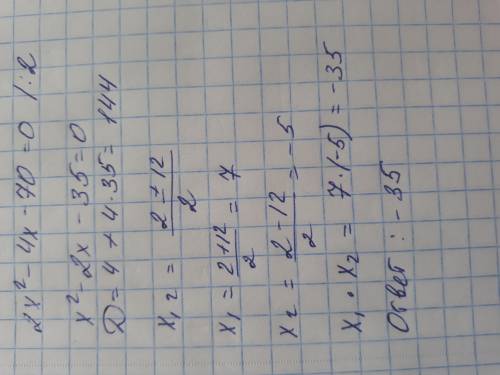 2x² - 4x - 70 = 0 | : 2
x² - 2x - 35 = 0
D = 4 + 4 · 35 = 144
x₁,₂ = (2 ± 12) / 2
x₁ = (2 + 12) / 2 = 7
x₂ = (2 - 12) / 2 = -5
x₁ · x₂ = 7 · (-5) = -35
Ответ : -35